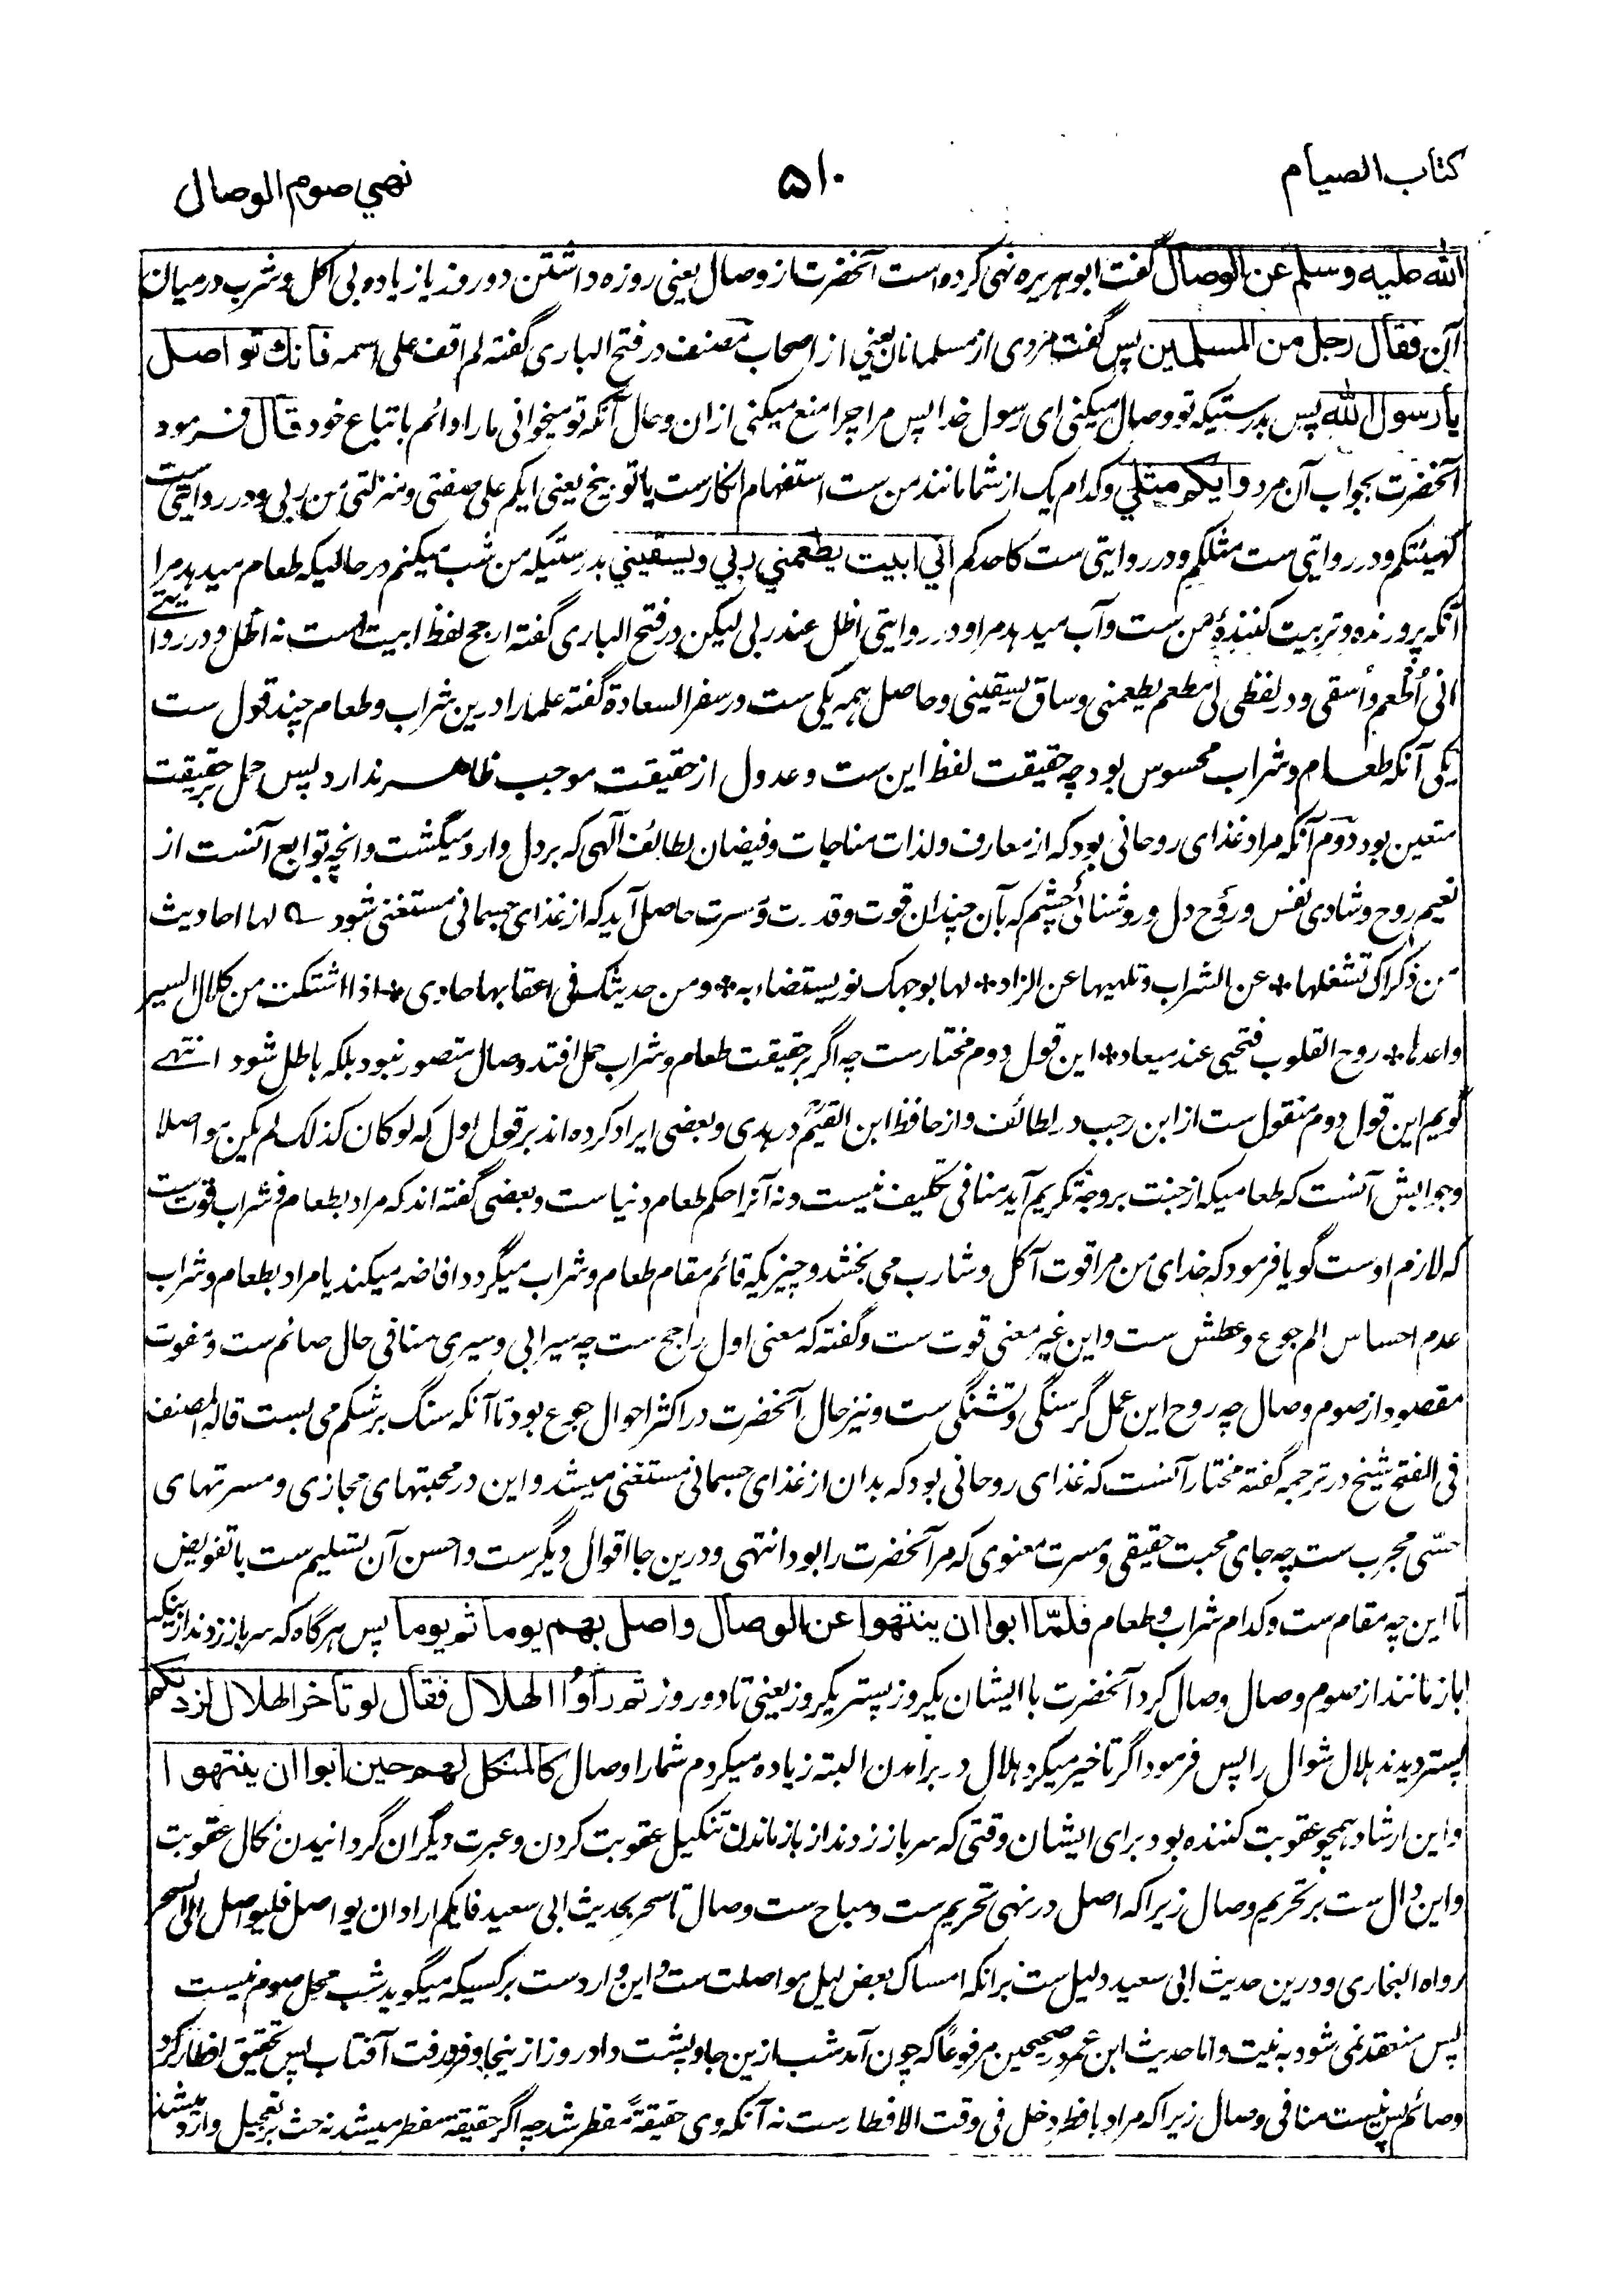 کتاب الصیام
۵۱۰
نهي صوم الوصال
الله علیه وسلم عن الوصال گفت ابوهریره نهی کرده است آنحضرت از وصال یعنی روزه داشتن دو روز یا زیاده بی اکل و شرب در میان
آن فقال رجل من المسلمین پس گفت مردی از مسلمانان یعنی از اصحاب مصنف در فتح الباری گفته لم اقف علی اسمه فانك تواصل
یا رسول الله پس بدرستیکه تو وصال میکنی ای رسول خدا پس مرا چرا منع میکنی ازان و حال آنکه تو میخوانی ما را دائم باتباع خود قال فرمود
آنحضرت بجواب آن مرد وایکم مثلي وکدام یک از شما مانند من ست استفهام انکارست یا توبیخ یعنی ایکم علی صفتی ومنزلتی من ربی ودر روایتی ست
کهیئتکم ودر روایتی ست مثلکم ودر روایتی ست کاحدکم انی ابیت یطعمني ربي ویسقیني بدرستیکه من شب میکنم در حالیکه طعام میدهد مرا
آنکه پرورنده وتربیت کنندهٔ من ست وآب میدهد مرا ودر روایتی اظل عند ربی لیکن در فتح الباری گفته ارجح لفظ ابیت است نه اظل ودر روایتے
انی اُطعم واُسقی ودر لفظی لی مطعم یطعمنی وساق یسقینی وحاصل همه یکی ست ودر سفر السعادة گفته علما را درین شراب وطعام چند قول ست
یکی آنکه طعام وشراب محسوس بود چه حقیقت لفظ این ست وعدول از حقیقت موجب ظاهر ندارد پس حمل بر حقیقت
متعین بود دوم آنکه مراد غذای روحانی بود که از معارف ولذات مناجات وفیضان لطائف آلهی که بر دل وارد میگشت وانچه توابع آنست از
نعیم روح وشادی نفس وروح دل وروشنائی چشم که بآن چندان قوت وقدرت ومسرت حاصل آید که از غذای جسمانی مستغنی شود لها احادیث
من ذکراک تشغلها * عن الشراب وتلهیها عن الزاد * لها بوجهک نور یستضاء به * ومن حدیثک فی اعقابها حادی * اذا اشتکت من کلال السیر
واعدها * روح القلوب فتحیی عند میعاد * این قول دوم مختارست چه اگر بر حقیقت طعام وشراب حمل افتد وصال متصور نبود بلکه باطل شود انتهے
گویم این قول دوم منقول ست از ابن رجب در لطائف واز حافظ ابن القیم در هدی وبعضی ایراد کرده اند بر قول اول که لو کان کذلک لم یکن مواصلا
وجوابش آنست که طعامیکه از جنت بر وجه تکریم آید منافی تکلیف نیست ونه آنرا حکم طعام دنیا ست وبعضی گفته اند که مراد بطعام وشراب قوت ست
که لازم اوست گویا فرمود که خدای من مرا قوت آکل وشارب می بخشد وچیزیکه قائم مقام طعام وشراب میگردد افاضه میکند یا مراد بطعام وشراب
عدم احساس الم جوع وعطش ست واین غیر معنی قوت ست وگفته که معنی اول راجح ست چه سیرابی وسیری منافی حال صائم ست ومفوت
مقصود از صوم وصال چه روح این عمل گرسنگی وتشنگی ست ونیز حال آنحضرت در اکثر احوال جوع بود تا آنکه سنگ بر شکم می بست قاله المصنف
فی الفتح شیخ در ترجمه گفته مختار آنست که غذای روحانی بود که بدان از غذای جسمانی مستغنی میشد واین در محبتهای مجازی ومسرتهای
حسّی مجرب ست چه جای محبت حقیقی ومسرت معنوی که مر آنحضرت را بود انتهی ودرین جا اقوال دیگرست واحسن آن تسلیم ست با تفویض
تا این چه مقام ست وکدام شراب وطعام فلمّا ابوا ان ینتهوا عن الوصال واصل بهم یوما ثم یوما پس هرگاه که سر باز زدند ازینکه
باز مانند از صوم وصال وصال کرد آنحضرت با ایشان یکروز پستر یکروز یعنی تا دو روز ثم رأوا الهلال فقال لو تأخر الهلال لزدتکم
پستر دیدند هلال شوال را پس فرمود اگر تاخیر میکرد هلال در برآمدن البته زیاده میکردم شما را وصال کالمنکل لهم حین ابوا ان ینتهوا
واین ارشاد همچو عقوبت کننده بود برای ایشان وقتی که سر باز زدند از باز ماندن تنکیل عقوبت کردن وعبرت دیگران گردانیدن نکال عقوبت
واین دال ست بر تحریم وصال زیراکه اصل در نهی تحریم ست ومباح ست وصال تا سحر بحدیث ابی سعید فایکم اراد ان یواصل فلیواصل الی السحر
رواه البخاری ودرین حدیث ابی سعید دلیل ست برانکه امساک بعض لیل مواصلت ست واین وارد ست بر کسیکه میگوید شب محل صوم نیست
پس منعقد نمی شود به نیت واما حدیث ابن عمر در صحیحین مرفوعًا که چون آمد شب ازین جا وپشت داد روز ازینجا وفرو رفت آفتاب پس تحقیق افطار کرد
وصائم پس نیست منافی وصال زیراکه مراد بافطر دخل فی وقت الافطار ست نه آنکه وی حقیقةً مفطر شد چه اگر حقیقة مفطر میشد نه حث بر تعجیل وارد میشد